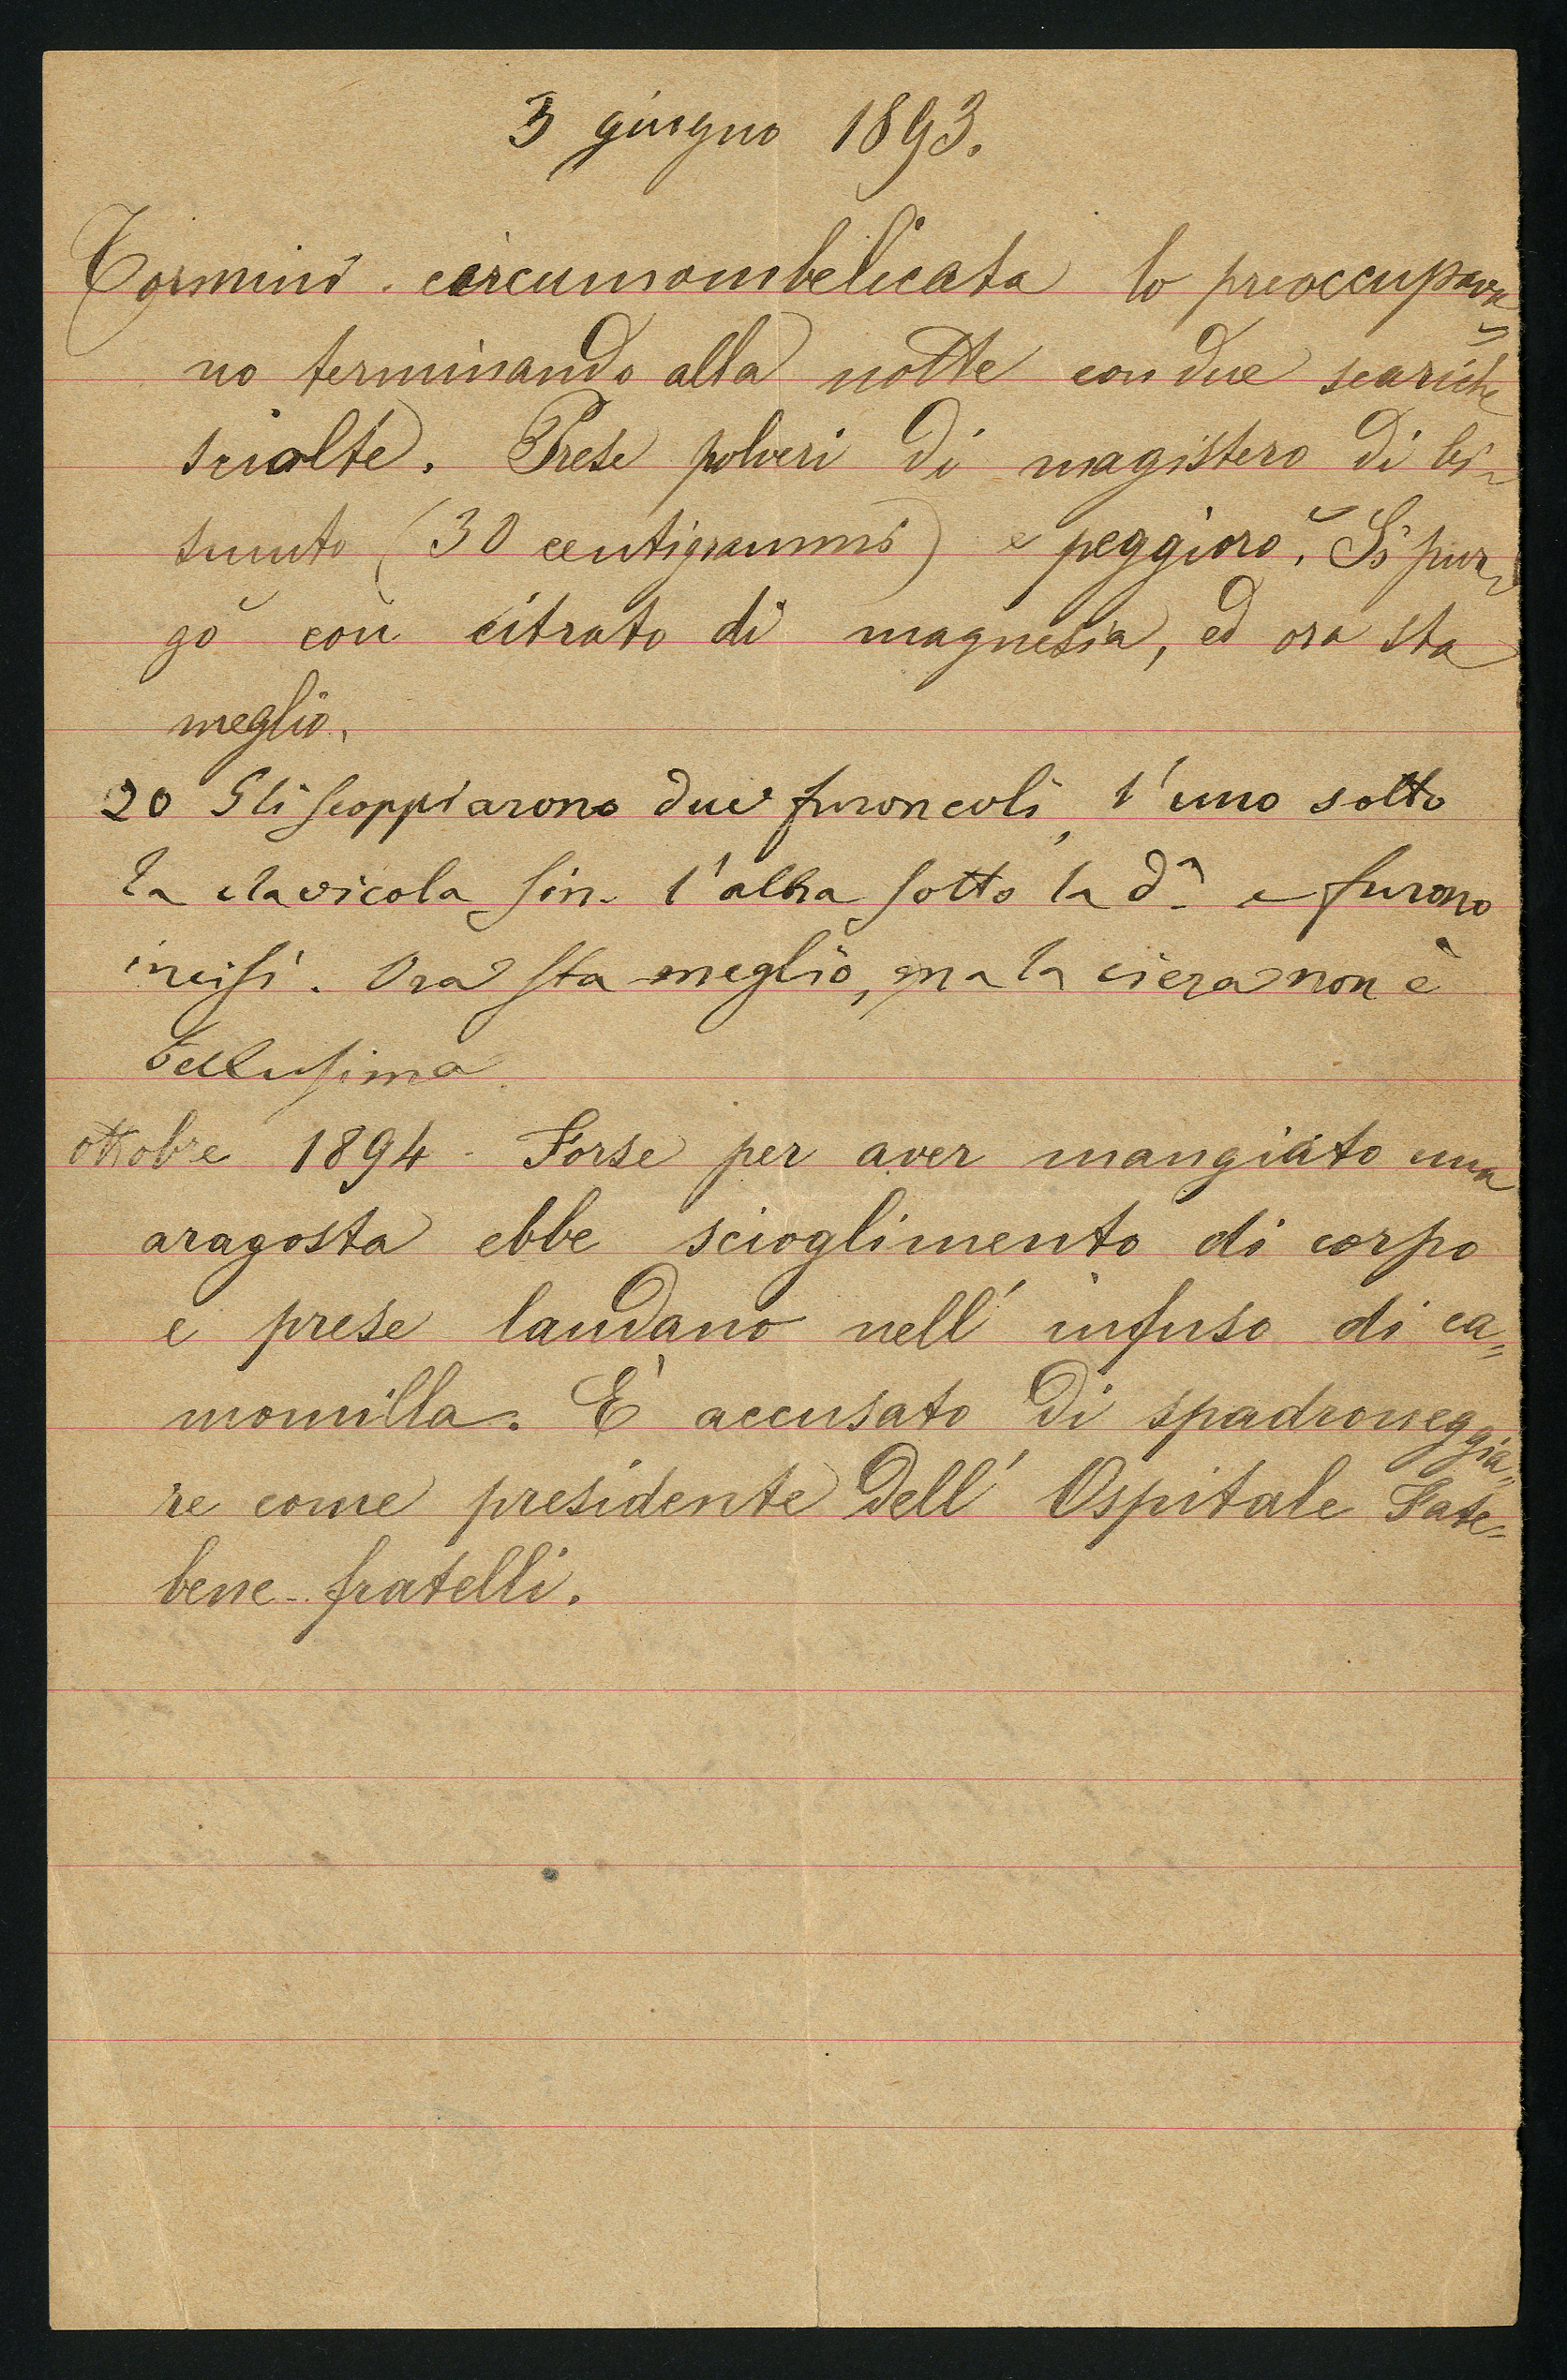 3 giugno 1893.
Tormini circumombelicata lo preoccupava
no terminando alla notte con due scariche
sciolte. Prese polveri di magistero di bi-
smuto (30 centigrammi) e peggiorò. Si pur-
gò con citrato di magnesia, ed ora sta
meglio.
20 Gli scoppiarono due furoncoli, l'uno sotto
la clavicola sin. l'altra sotto la d.a e furono
incisi. Ora sta meglio, ma la ciera non è
bellissima
ottobre 1894 - Forse per aver mangiato una
aragosta ebbe scioglimento di corpo
e prese laudano nell' infuso di ca=
momilla. È accusato di spadroneggia=
re come presidente dell' Ospitale Fate=
bene-fratelli.